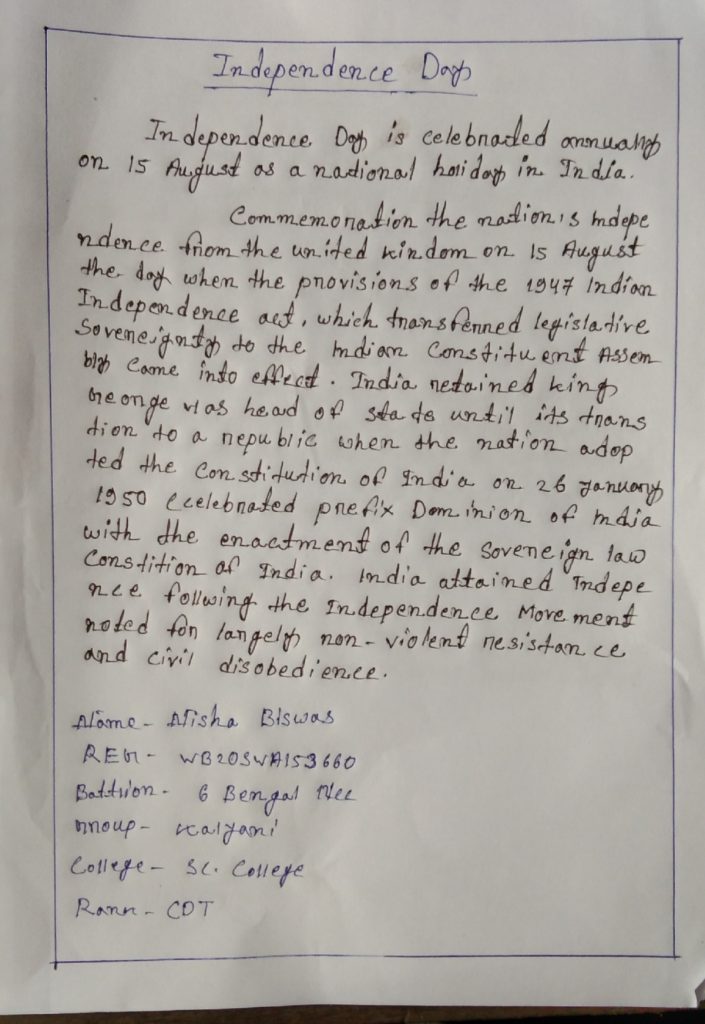 Independence Day
Independence Day is celebrated annually
on 15 August as a national holiday in India.
Commemoration the nation's indepe
ndence from the united kindom on 15 August
the day when the provisions of the 1947 Indian
Independence act, which transferred legislative
Sovereignty to the Indian Constituent Assem
bly Came into effect. India retained king
George VI as head of state until its trans
tion to a republic when the nation adop
ted the Constitution of India on 26 January
1950 (celebrated prefix Dominion of India
with the enactment of the sovereign law
Constition of India. India attained Indepe
nce follwing the Independence Movement
noted for largely non-violent resistance
and civil disobedience.
Name - Nisha Biswas
REG - WB20SWA153660
Battlion - 6 Bengal Ncc
Group - Kalyani
College - S.C. College
Rank - CDT